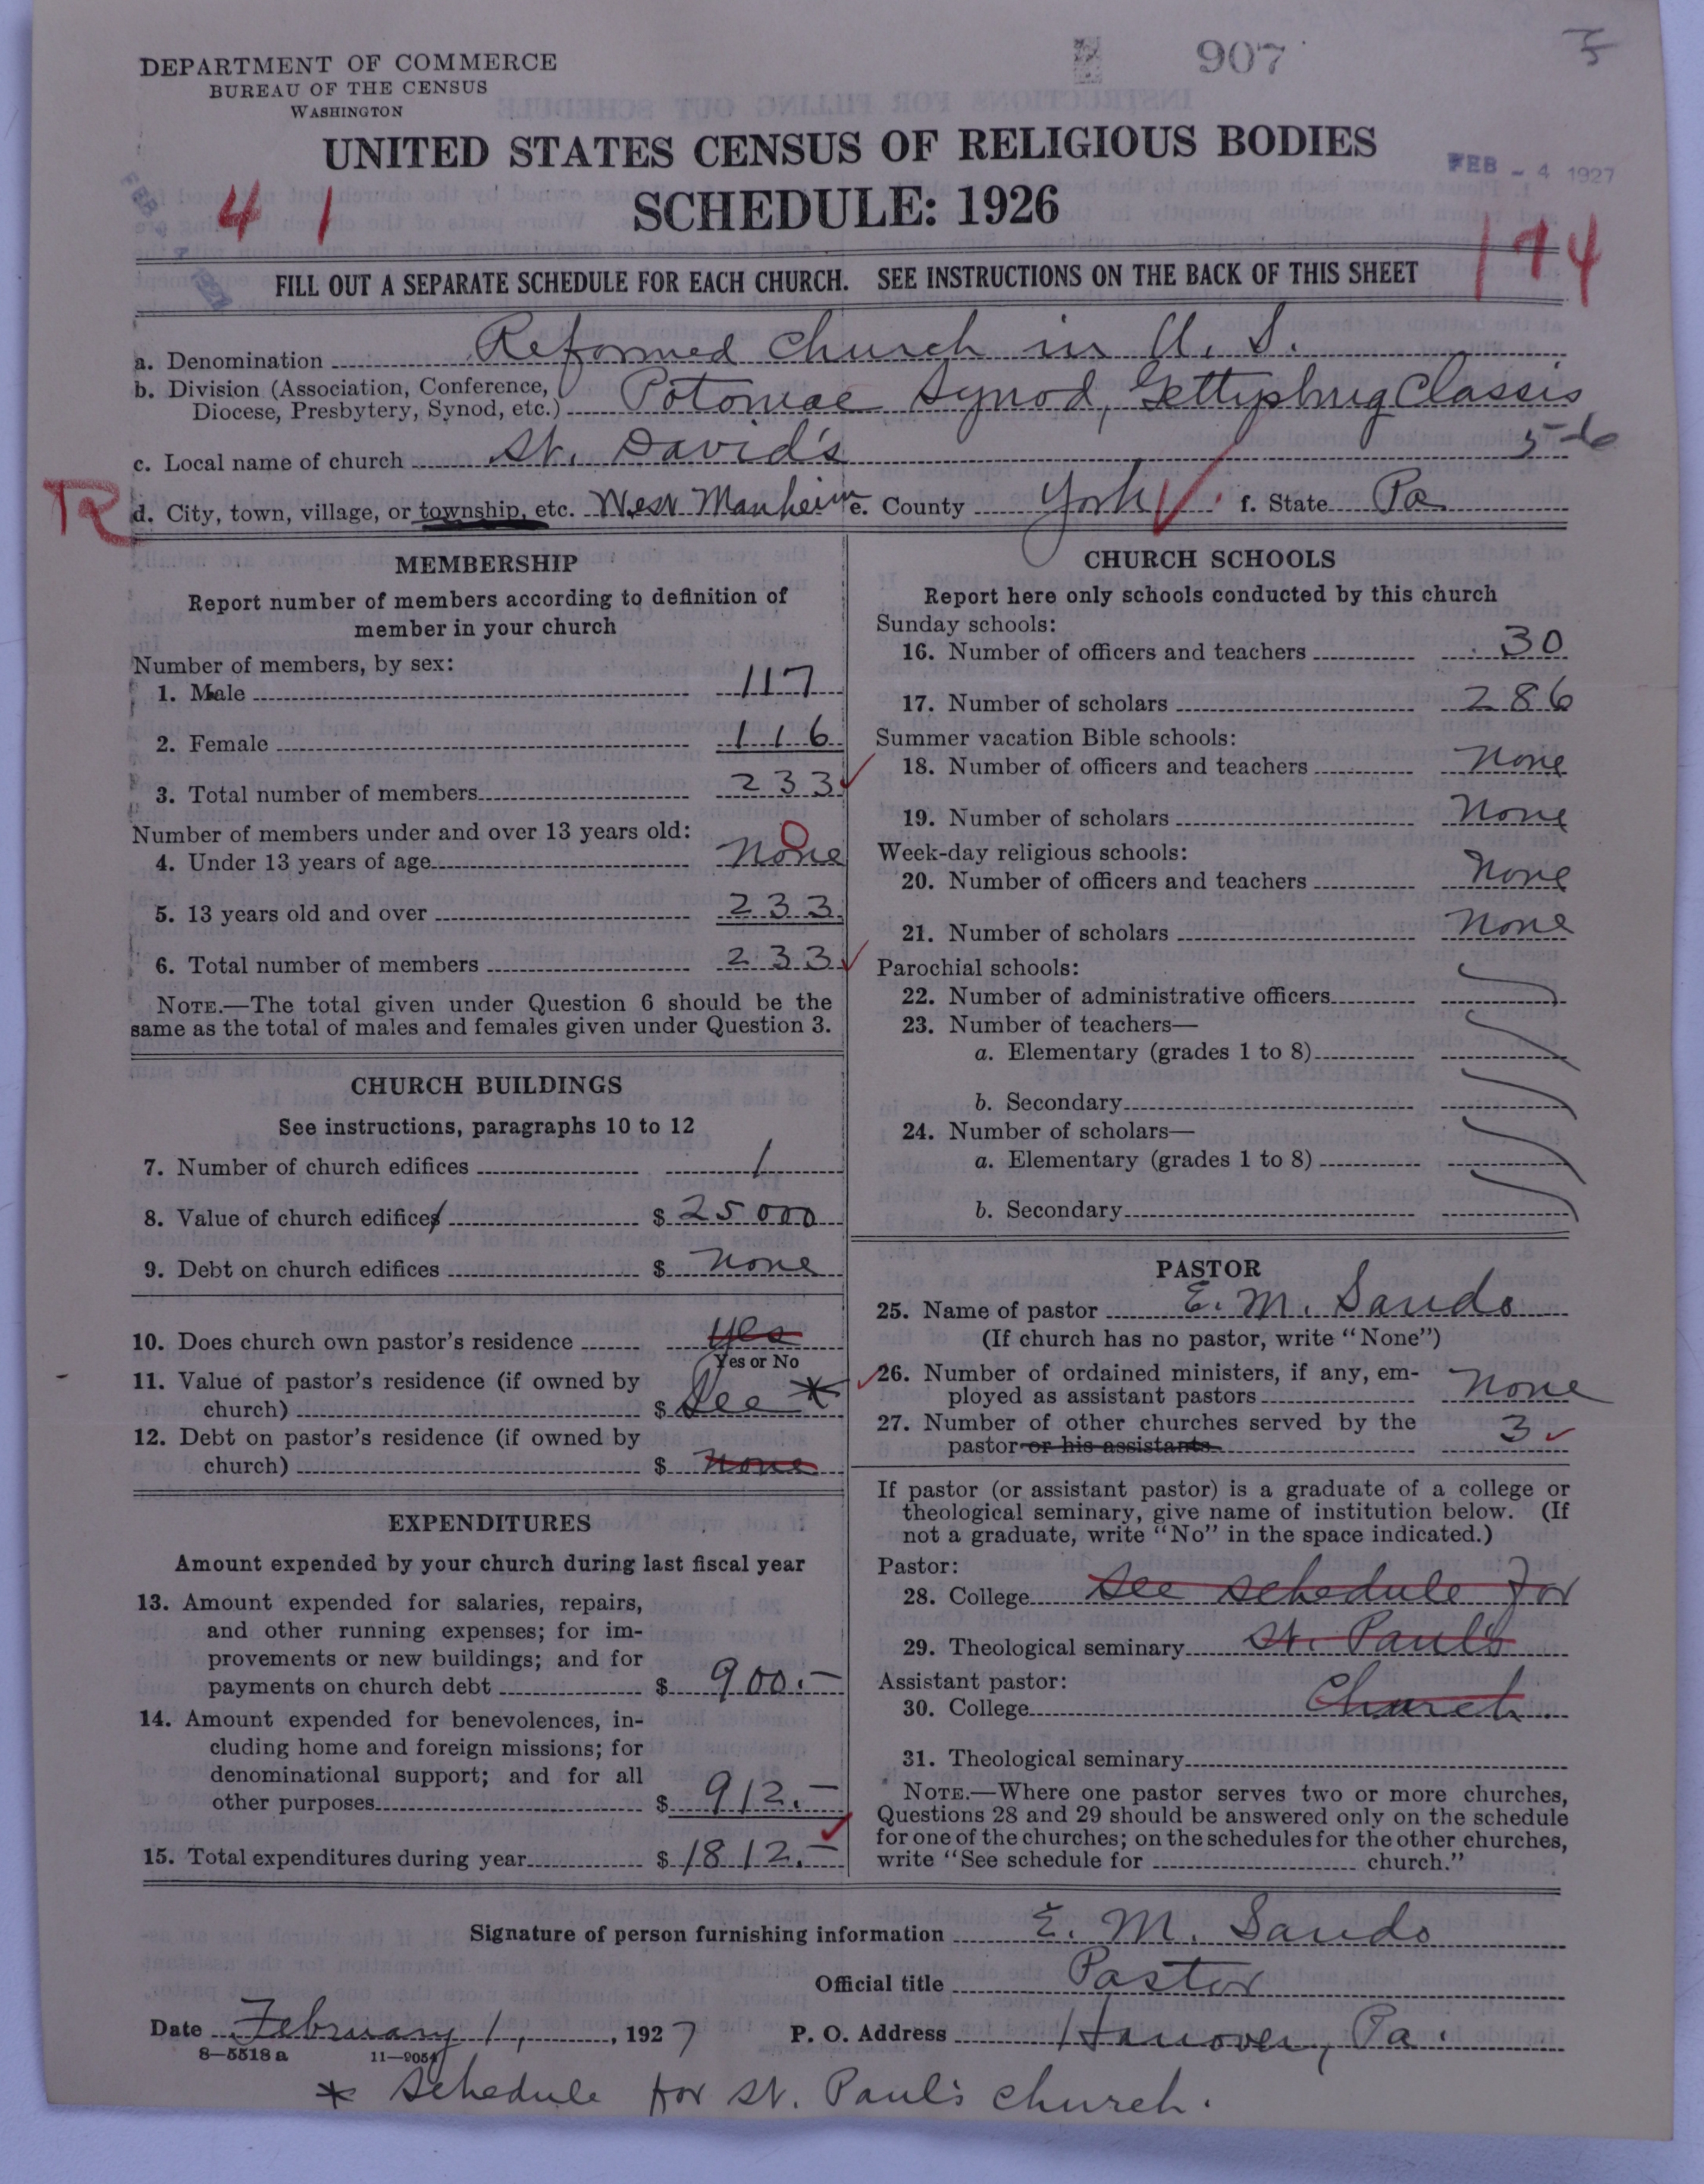 DEPARTMENT OF COMMERCE
BUREAU OF THE CENSUS
WASHINGTON
907
UNITED STATES CENSUS OF RELIGIOUS BODIES
SCHEDULE: 1926
FEB - 4 1927
41
174
FILL OUT A SEPARATE SCHEDULE FOR EACH CHURCH. SEE INSTRUCTIONS ON THE BACK OF THIS SHEET
a. Denomination Reformed Church in U. S.
b. Division (Association, Conference, Diocese, Presbytery, Synod, etc.) Potomac Synod, Gettysburg Classis
c. Local name of church St. David's
R
d. City, town, village, or township, etc. West Manheim e. County York f. State Pa
MEMBERSHIP
Report number of members according to definition of
member in your church
Number of members, by sex:
1. Male 117
2. Female 116
3. Total number of members 233
Number of members under and over 13 years old:
0
4. Under 13 years of age None
5. 13 years old and over 233
6. Total number of members 233
NOTE.—The total given under Question 6 should be the
same as the total of males and females given under Question 3.
CHURCH BUILDINGS
See instructions, paragraphs 10 to 12
7. Number of church edifices 1
8. Value of church edifices $ 25000
9. Debt on church edifices $ None
10. Does church own pastor's residence yes
Yes or No
11. Value of pastor's residence (if owned by
church) $ See *
12. Debt on pastor's residence (if owned by
church) $ None
EXPENDITURES
Amount expended by your church during last fiscal year
13. Amount expended for salaries, repairs,
and other running expenses; for im-
provements or new buildings; and for
payments on church debt $ 900.—
14. Amount expended for benevolences, in-
cluding home and foreign missions; for
denominational support; and for all
other purposes $ 912.—
15. Total expenditures during year $ 1812.—
CHURCH SCHOOLS
Report here only schools conducted by this church
Sunday schools:
16. Number of officers and teachers 30
17. Number of scholars 286
Summer vacation Bible schools:
18. Number of officers and teachers None
19. Number of scholars None
Week-day religious schools:
20. Number of officers and teachers None
21. Number of scholars None
Parochial schools:
22. Number of administrative officers
23. Number of teachers—
a. Elementary (grades 1 to 8)
b. Secondary
24. Number of scholars—
a. Elementary (grades 1 to 8)
b. Secondary
PASTOR
25. Name of pastor E. M. Sando
(If church has no pastor, write "None")
26. Number of ordained ministers, if any, em-
ployed as assistant pastors None
27. Number of other churches served by the
pastor or his assistants 3
If pastor (or assistant pastor) is a graduate of a college or
theological seminary, give name of institution below. (If
not a graduate, write "No" in the space indicated.)
Pastor:
28. College See schedule for
29. Theological seminary St. Paul's
Assistant pastor:
30. College Church
31. Theological seminary
NOTE.—Where one pastor serves two or more churches,
Questions 28 and 29 should be answered only on the schedule
for one of the churches; on the schedules for the other churches,
write "See schedule for church."
Signature of person furnishing information E. M. Sando
Official title Pastor
Date February 1, , 1927 P. O. Address Hanover, Pa.
8—5518a 11—9054
* Schedule for St. Paul's Church.